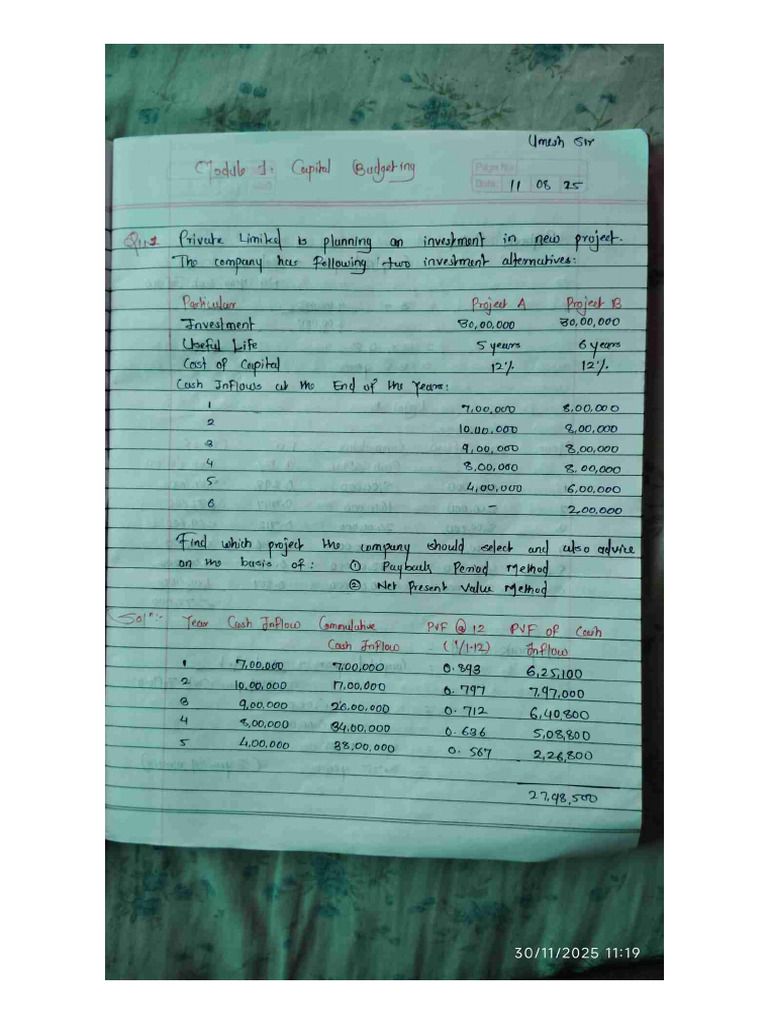 Umesh Sir
Module 1: Capital Budgeting
Page No.
Date: 11 08 25
Q1.1 Private Limited is planning an investment in new project.
The company has following two investment alternatives:
Particular Project A Project B
Investment 30,00,000 30,00,000
Useful Life 5 years 6 years
Cost of Capital 12% 12%
Cash Inflows at the End of the Years:
1 7,00,000 8,00,000
2 10,00,000 8,00,000
3 9,00,000 8,00,000
4 8,00,000 8,00,000
5 4,00,000 6,00,000
6 - 2,00,000
Find which project the company should select and also advice
on the basis of: ① Payback Period Method
② Net Present Value Method
Solⁿ:- Year Cash Inflow Commulative PVF @ 12 PVF of Cash
Cash Inflow (1/1.12) Inflow
1 7,00,000 7,00,000 0.893 6,25,100
2 10,00,000 17,00,000 0.797 7,97,000
3 9,00,000 26,00,000 0.712 6,40,800
4 8,00,000 34,00,000 0.636 5,08,800
5 4,00,000 38,00,000 0.567 2,26,800
27,98,500
30/11/2025 11:19